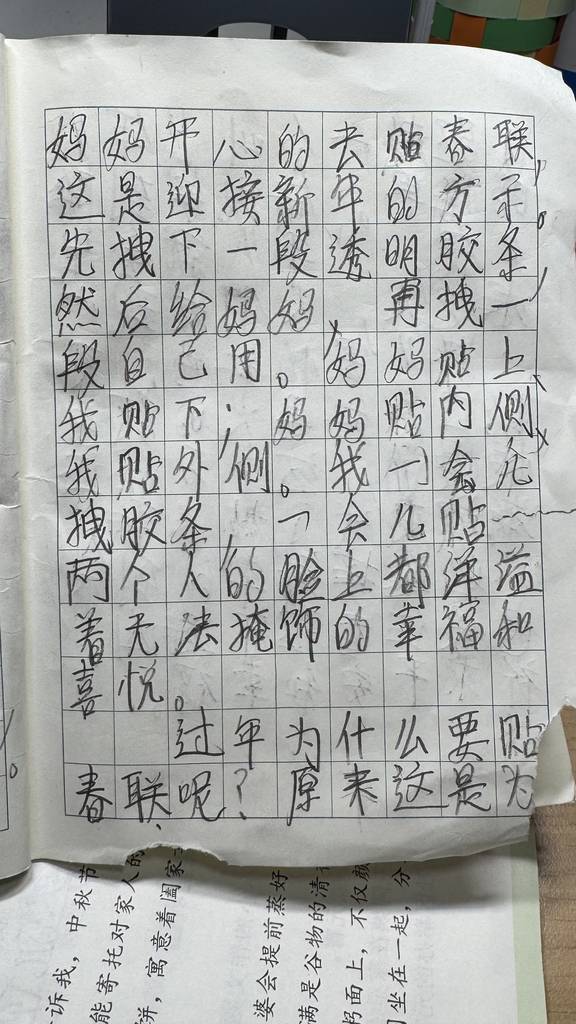 妈妈开心的去贴春联,
这是迎接新年的方示。
先拽下一段透明胶条,
然后给妈妈,再拽一
段自己用。妈妈贴上,
我贴下;妈妈贴内侧,
我贴外侧。我一会儿
拽胶条,一会儿贴……
两个人的脸上都洋溢
着无法掩饰的幸福和
喜悦。
过年为什么要贴
春联呢?原来这是为
诉我,中秋节
能寄托对家人的
饼,寓意着阖家
婆会提前蒸好
满是谷物的清
面上,不仅颜
坐在一起,分